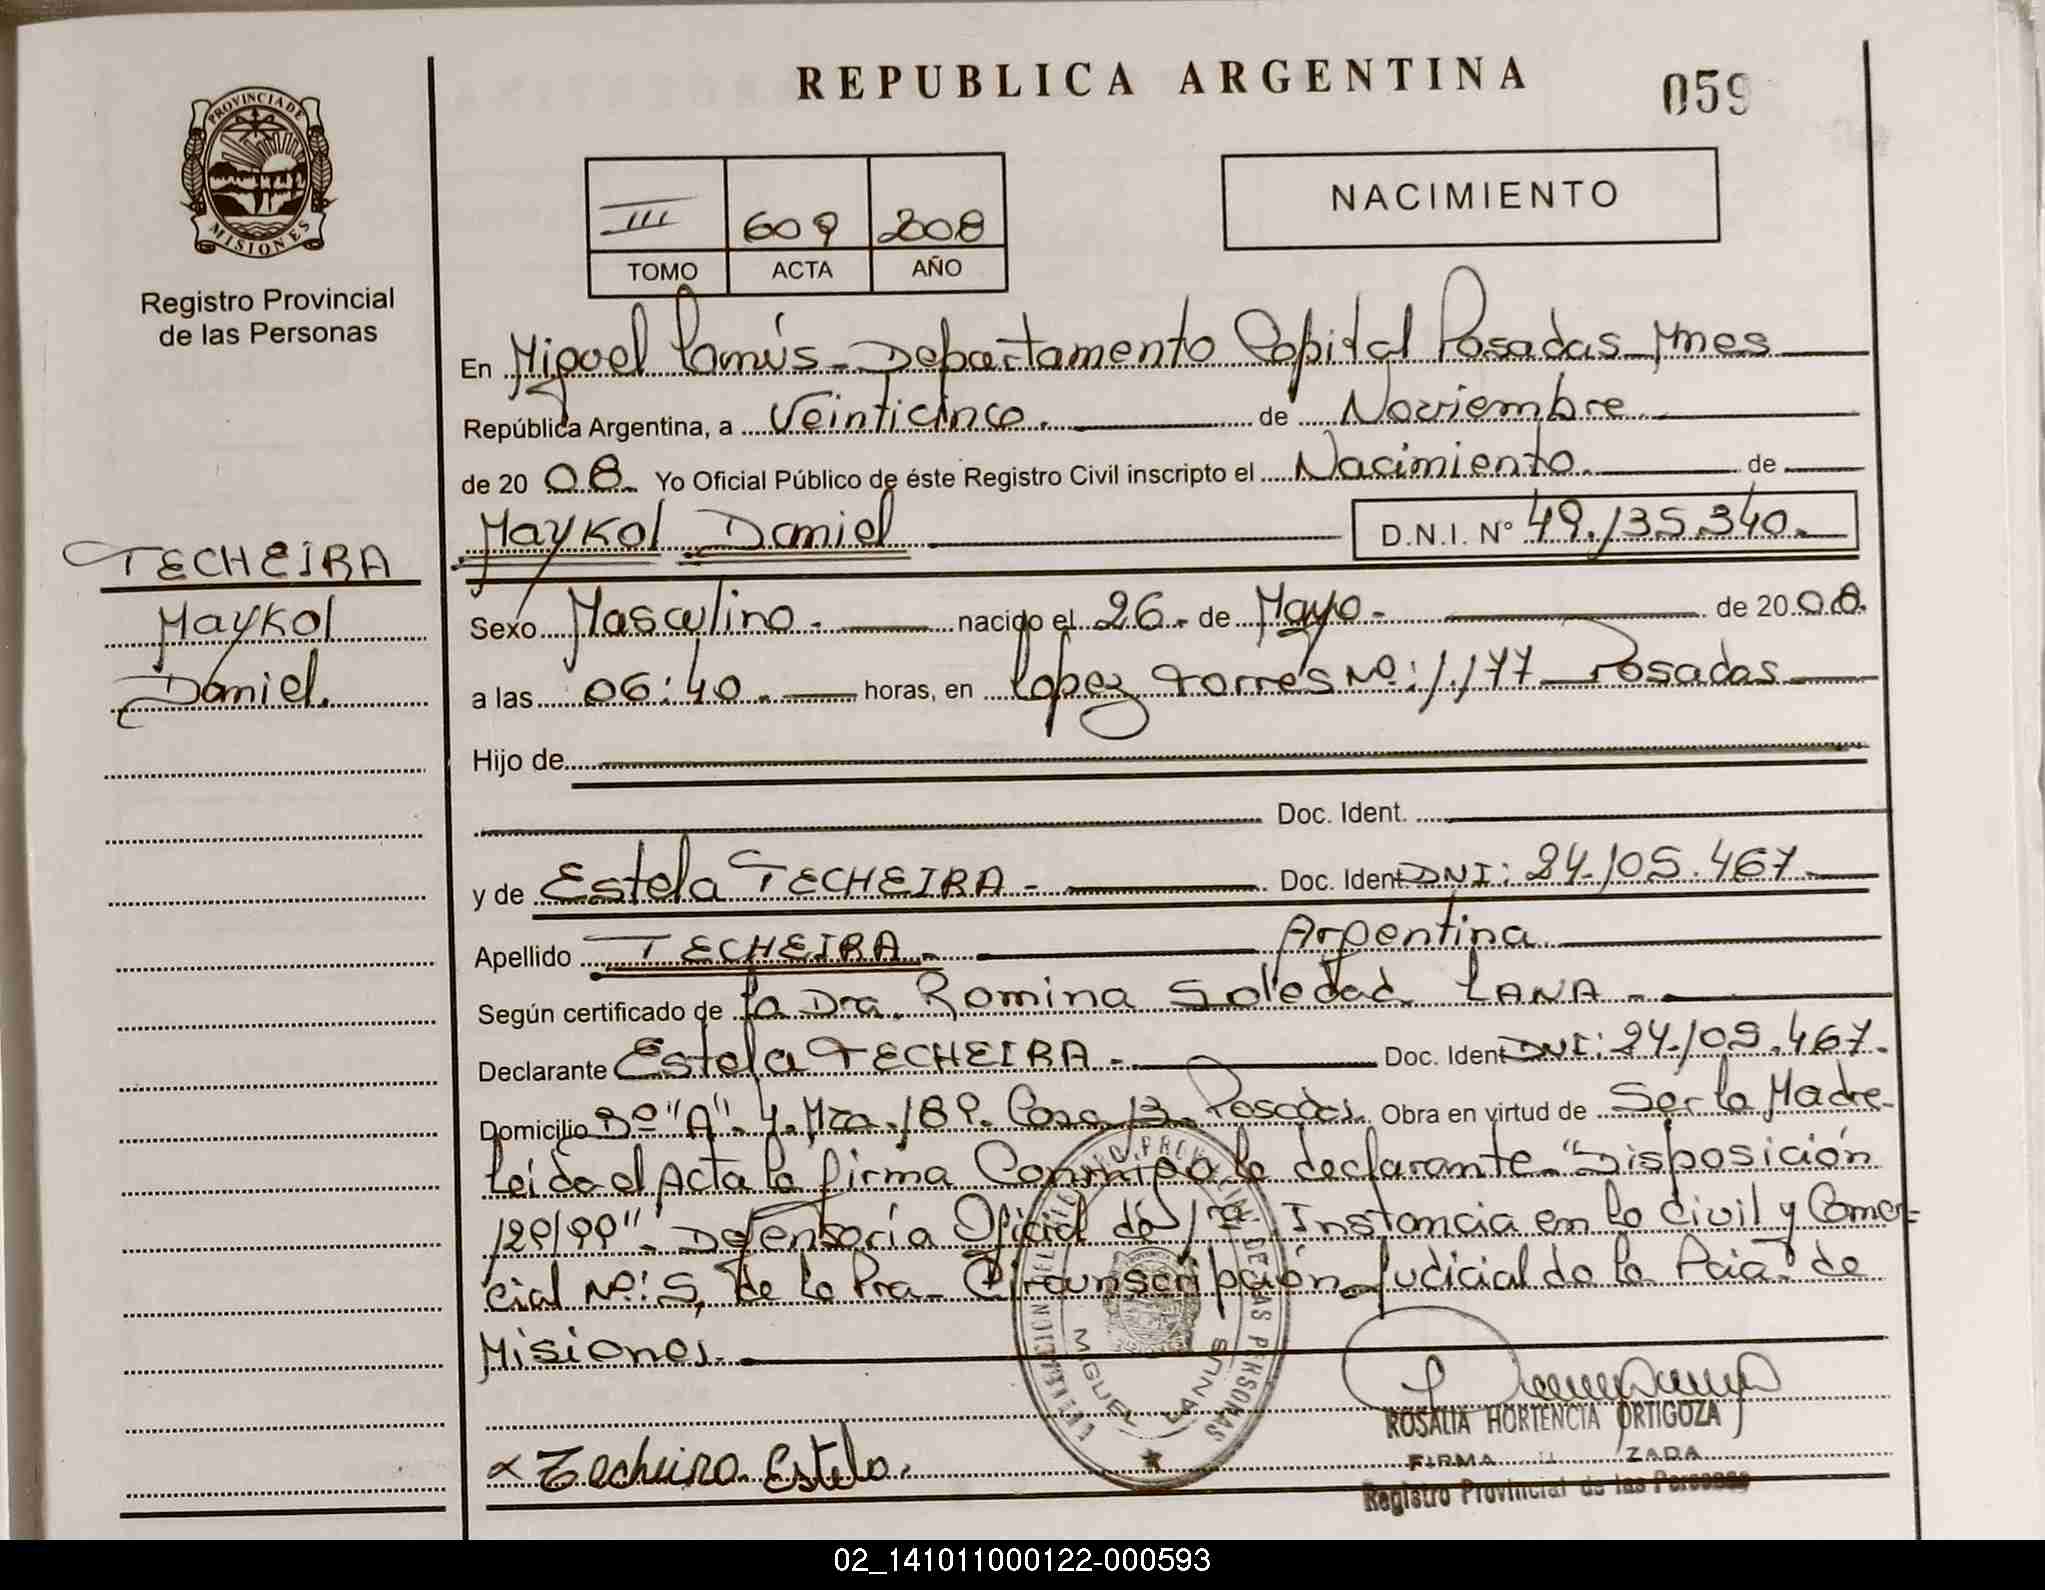 PROVINCIA DE
MISIONES
Registro Provincial
de las Personas
TECHEIRA
Maykol
Daniel.
REPUBLICA ARGENTINA
059
III 609 2008
TOMO ACTA AÑO
NACIMIENTO
En Miguel Lanús - Departamento Capital Posadas Mnes
República Argentina, a Veinticinco. de Noviembre
de 20 08. Yo Oficial Público de éste Registro Civil inscripto el Nacimiento. de
Maykol Daniel D.N.I. N° 49.135.340.
Sexo Masculino. nacido el 26. de Mayo. de 20 08.
a las 06:40. horas, en Lopez Torres Nº: 1.177 Posadas
Hijo de
Doc. Ident.
y de Estela TECHEIRA - Doc. Ident DNI: 24.105.467
Apellido TECHEIRA - Argentina
Según certificado de la Dra. Romina Soledad LANA -
Declarante Estela TECHEIRA - Doc. Ident DNI: 24.105.467.
Domicilio "A". 4. Mza. 189. Casa 13. Posadas. Obra en virtud de Ser la Madre
Leída el Acta la firma Conmigo la declarante. "Disposición
129/99". Defensoría Oficial de 1ra Instancia en lo Civil y Comer-
cial Nº: 5, de la Pra- Circunscripción Judicial de la Pcia de
Misiones.
MIGUEL LANUS
Techeira Estela.
ROSALIA HORTENCIA ORTIGOZA
FIRMA
Registro Provincial de las Personas
02_141011000122-000593